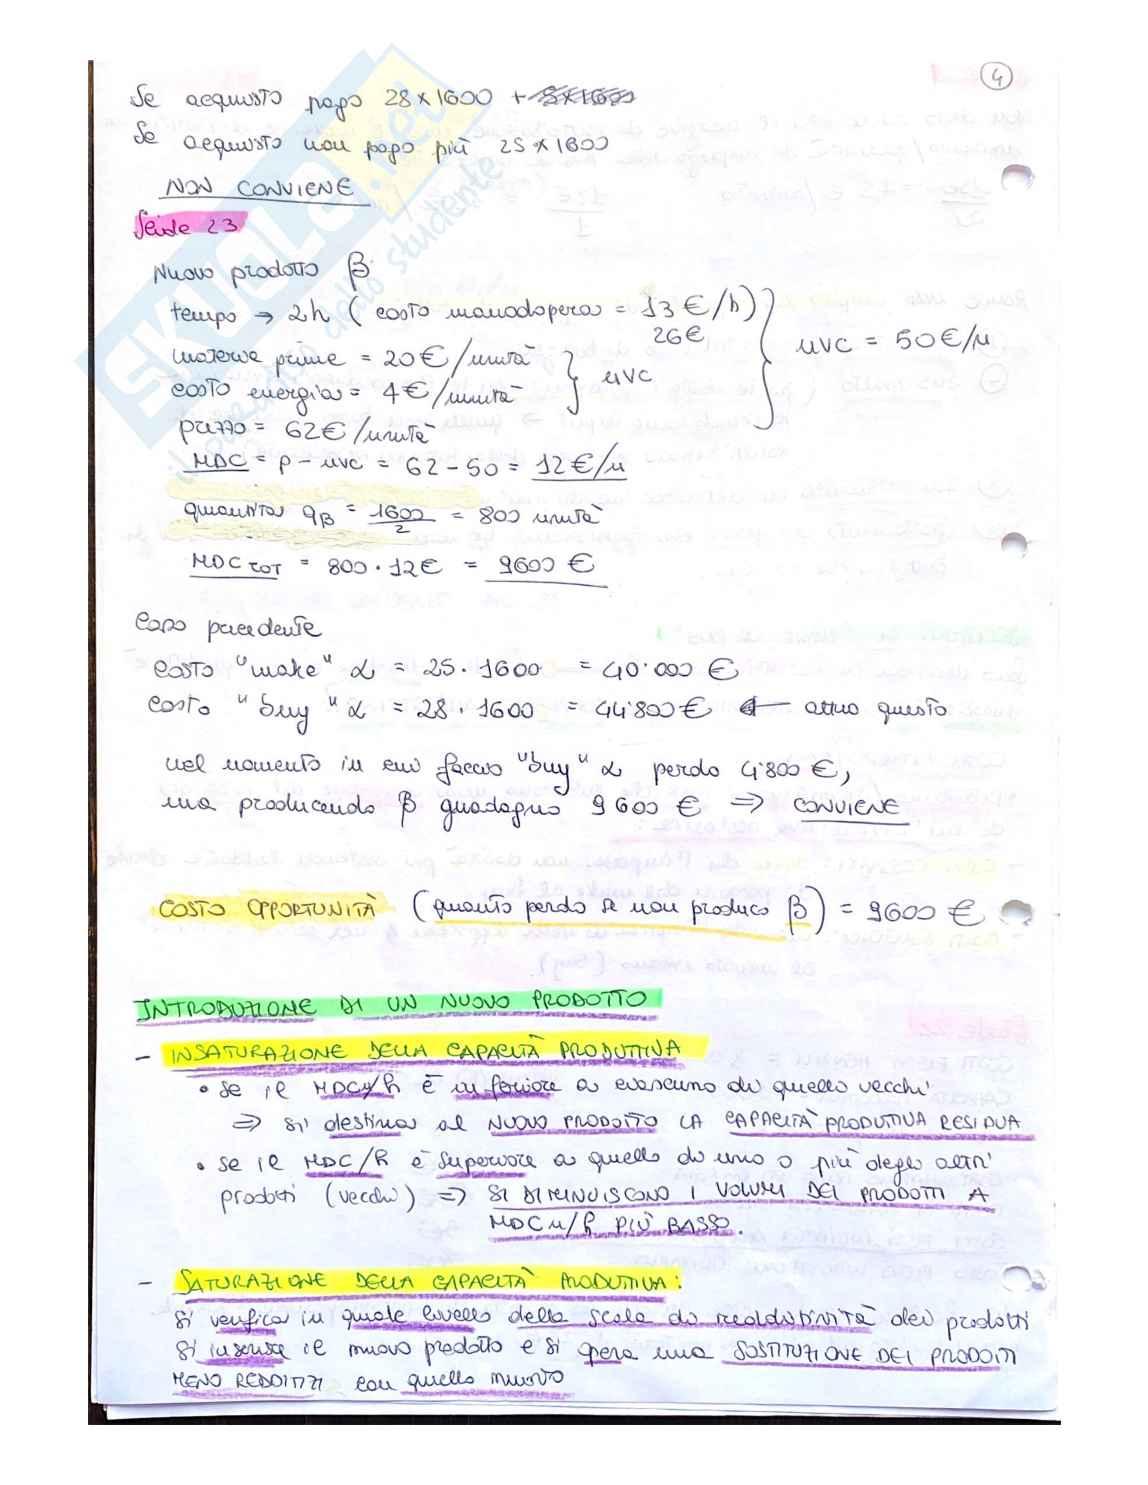 4
Se acquisto pago 28 x 1600 + 8x1600
Se acquisto non pago più 25 x 1600
NON CONVIENE
Slide 23
Nuovo prodotto β
tempo → 2h ( costo manodopera = 13 €/h)
26€
materie prime = 20€/unità
costo energia = 4€/unità
uvc
uvc = 50€/u
prezzo = 62€/unità
MDC = p - uvc = 62 - 50 = 12€/u
quantità qβ = 1600/2 = 800 unità
MDC TOT = 800 · 12€ = 9600 €
Caso precedente
costo "make" α = 25 · 1600 = 40·000 €
costo "buy" α = 28 · 1600 = 44·800 € ← attuo questo
nel momento in cui faccio "buy" α perdo 4·800 €,
ma producendo β guadagno 9600 € ⇒ CONVIENE
COSTO OPPORTUNITÀ (quanto perdo se non produco β) = 9600 €
INTRODUZIONE DI UN NUOVO PRODOTTO
- INSATURAZIONE DELLA CAPACITÀ PRODUTTIVA
• se il MDCu/h è inferiore a ciascuno di quello vecchi
⇒ si destina al NUOVO PRODOTTO LA CAPACITÀ PRODUTTIVA RESIDUA
• se il MDC/h è superiore a quello di uno o più degli altri
prodotti (vecchi) ⇒ SI DIMINUISCONO I VOLUMI DEI PRODOTTI A
MDCu/h PIÙ BASSO.
- SATURAZIONE DELLA CAPACITÀ PRODUTTIVA:
si verifica in quale livello della scala di redditività dei prodotti
si inserisce il nuovo prodotto e si opera una SOSTITUZIONE DEI PRODOTTI
MENO REDDITIZI con quello nuovo
SKUOLA.net
il paradiso dello studente